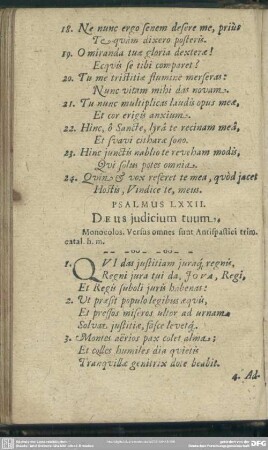 18. Ne nunc ergo senem desere me, priùs
Te quàm dixero posteris.
19. O miranda tuæ gloria dexteræ!
Ecquis se tibi comparet?
20. Tu me tristitiæ flumine merseras:
Nunc vitam mihi das novam.
21. Tu nunc multiplicas laudis opus meæ,
Et cor erigis anxium.
22. Hinc, ô Sancte, lyrâ te recinam meâ,
Et svavi citharæ sono.
23. Hinc junctis nablio te reveham modis,
Qui solus potes omnia.
24. Quin & vox referet te mea, quòd jacet
Hostis, Vindice te, meus.
PSALMUS LXXII.
Deus judicium tuum.
Monocolos. Versus omnes sunt Antispastici trim.
catal. h. m.
1. QUI das justitiam juraq́; regnis,
Regni jura tui da, Jova, Regi,
Et Regis suboli juris habenas:
2. Ut præsit populo legibus æquis,
Et pressos miseros ultor ad urnam
Solvat justitiæ, fasce levetq́;.
3. Montes aërios pax colet alma;
Et colles humiles dia quietis
Tranquillæ genitrix dote beabit.
4. Ad-